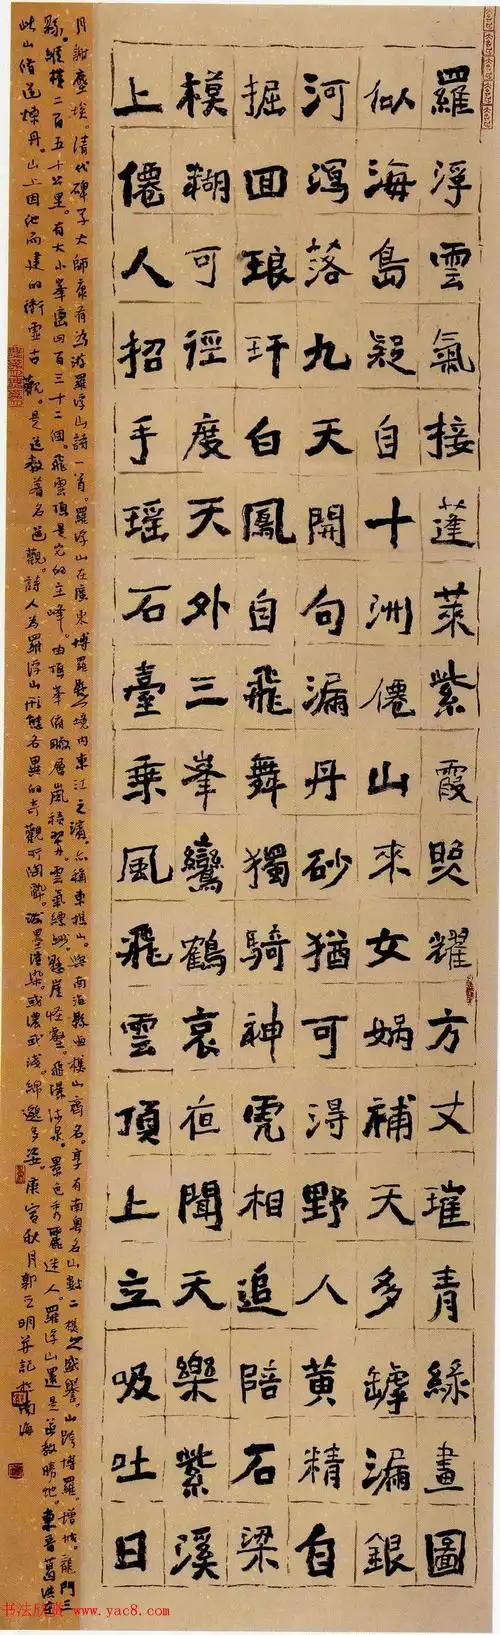 羅浮雲氣接蓬萊紫霞照耀方丈璀青綠畫圖
似海島疑自十洲僊山來女媧補天多罅漏銀
河瀉落九天開句漏丹砂猶可得野人黃精自
掘回琅玕白鳳自飛舞獨騎神虎相追陪石梁
模糊可徑度天外三峯鸞鶴哀夜聞天樂紫溪
上僊人招手瑶石臺乘風飛雲頂上立吸吐日
月謝塵埃。清代碑學大師康有為游羅浮山詩一首。羅浮山在廣東博羅縣境内東江之濱。亦稱東樵山。與南海縣西樵山齊名。享有南粤名山數二樵之盛譽。山跨博羅。增城。龍門三
縣。縱橫二百五十公里。有大小峯巒四百三十二個。飛雲頂是它的主峰。由頂峯俯瞰層嵐積翠。雲氣縹緲。懸崖怪壑。飛瀑流泉。景色秀麗迷人。羅浮山還是道教勝地。東晉葛洪在
此山修道煉丹。山上因他而建的衝虛古觀。是道教著名道觀。詩人為羅浮山形態各異的奇觀所陶醉。潑墨渲染。或濃或淺。綿邈多姿。庚寅秋月郭亞明并記於南海
书法欣赏 www.yac8.com